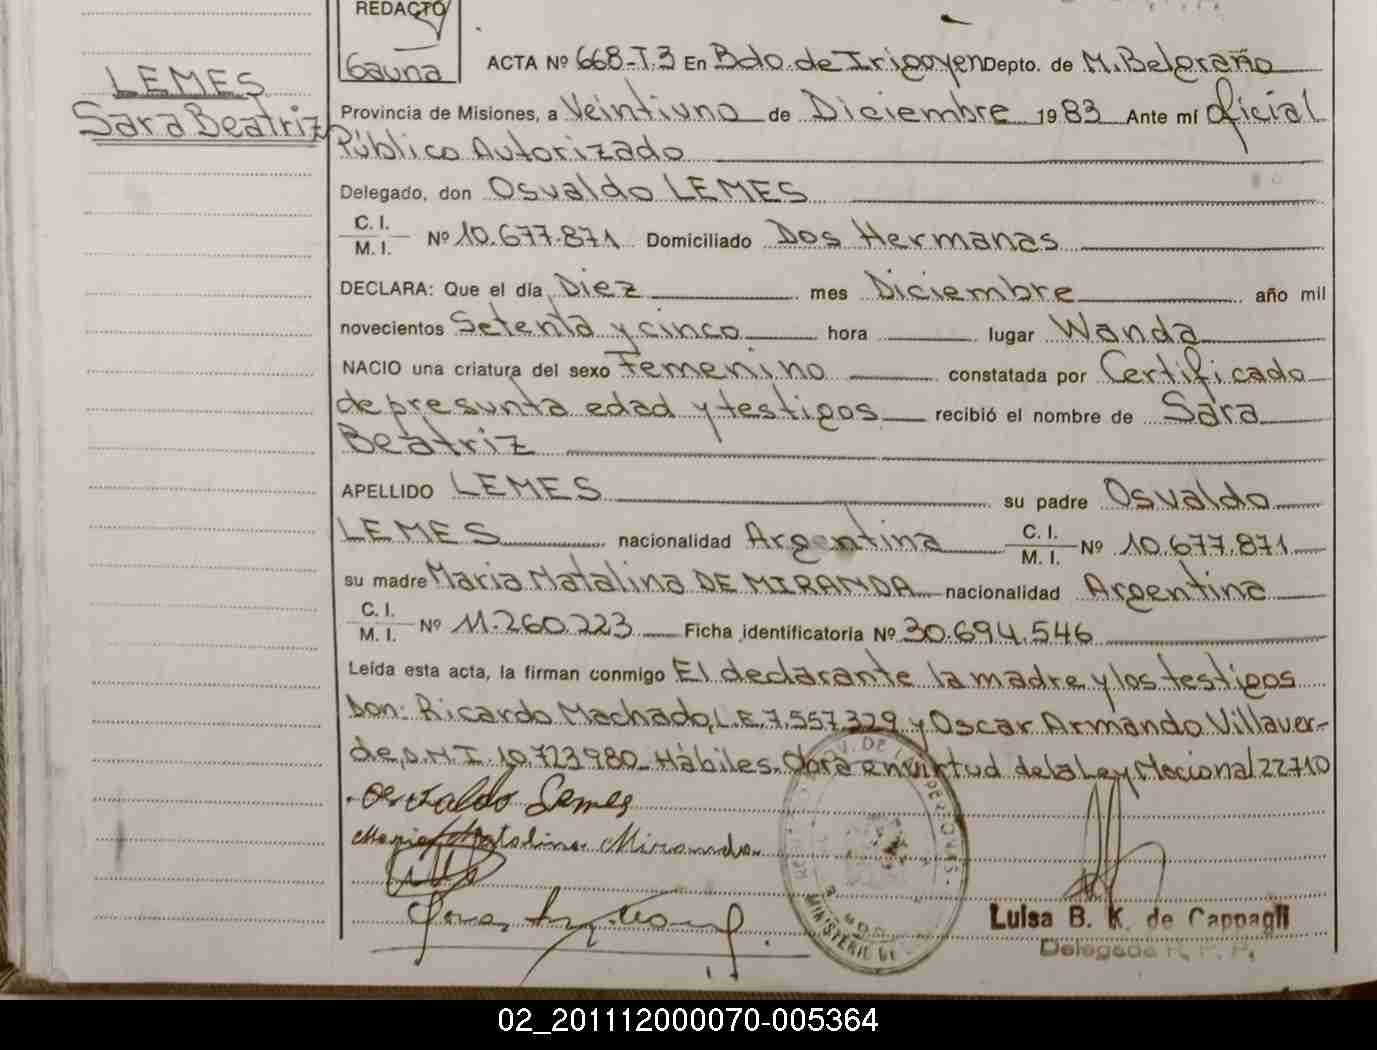 REDACTO
Gauna
LEMES
Sara Beatriz
ACTA Nº 668-T.3 En Bdo. de Irigoyen Depto. de M. Belgrano
Provincia de Misiones, a Veintiuno de Diciembre 1983 Ante mí Oficial
Público Autorizado
Delegado, don Osvaldo LEMES
C. I.
M. I. Nº 10.677.871 Domiciliado Dos Hermanas
DECLARA: Que el día Diez mes Diciembre año mil
novecientos Setenta y cinco hora lugar Wanda
NACIO una criatura del sexo Femenino constatada por Certificado
de presunta edad y testigos recibió el nombre de Sara
Beatriz
APELLIDO LEMES su padre Osvaldo
LEMES nacionalidad Argentina C. I. M. I. Nº 10.677.871
su madre Maria Natalina DE MIRANDA nacionalidad Argentina
C. I.
M. I. Nº 11.260.223 Ficha identificatoria Nº 30.694.546
Leída esta acta, la firman conmigo El declarante la madre y los testigos
Don: Ricardo Machado, L.E. 7.557.329 y Oscar Armando Villaver-
de, D.N.I. 10.723980_ Hábiles. Obra en virtud de la Ley Nacional 22710
Osvaldo Lemes
Maria Natalina Miranda
Luisa B. K. de Cappagli
Delegada R. P. P.
02_201112000070-005364